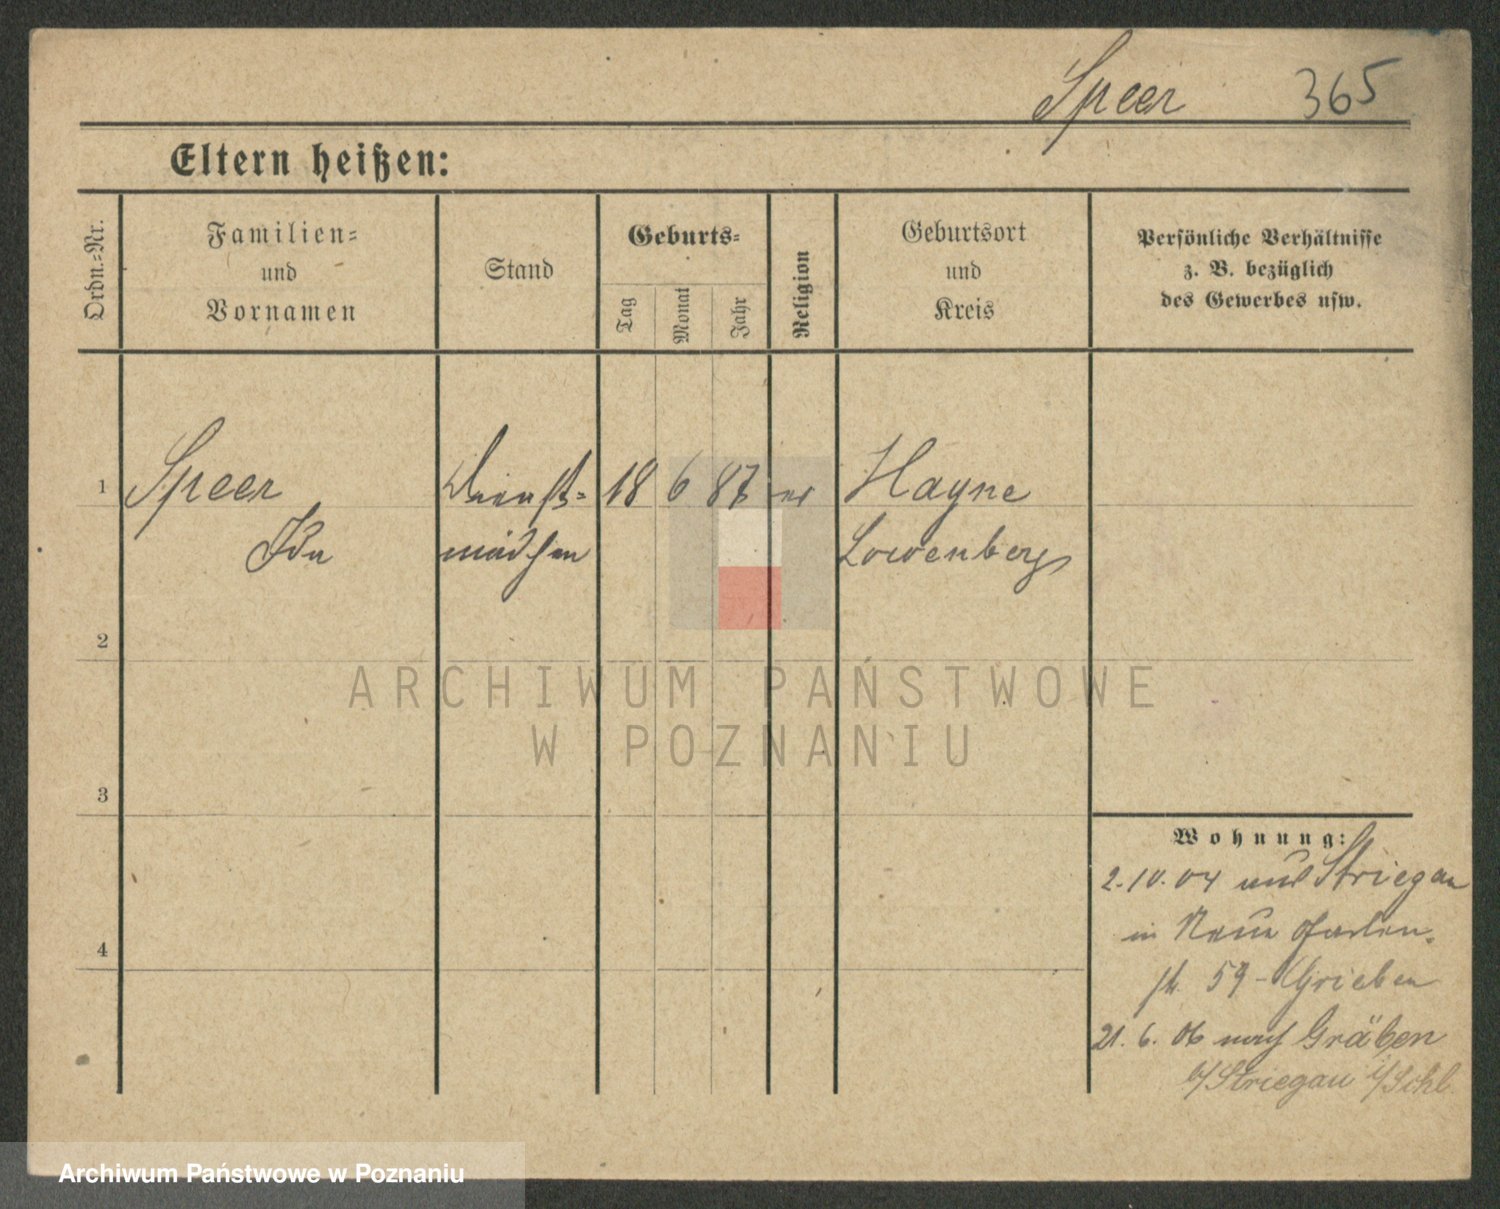 Speer 365
Eltern heißen:
Ordn.-Nr.
Familien-
und
Vornamen
Stand
Geburts-
Tag
Monat
Jahr
Religion
Geburtsort
und
Kreis
Persönliche Verhältnisse
z. B. bezüglich
des Gewerbes usw.
1 Speer Dienst- 18 6 87 ev Hayne
Ida mädchen Lowenberg
2
3
4
Wohnung:
2.10.04 aus Striegau
in Neue Garten-
str. 59 - Grieben
21. 6. 06 nach Gräben
b/Striegau i/Schl.
ARCHIWUM PAŃSTWOWE
W POZNANIU
Archiwum Państwowe w Poznaniu